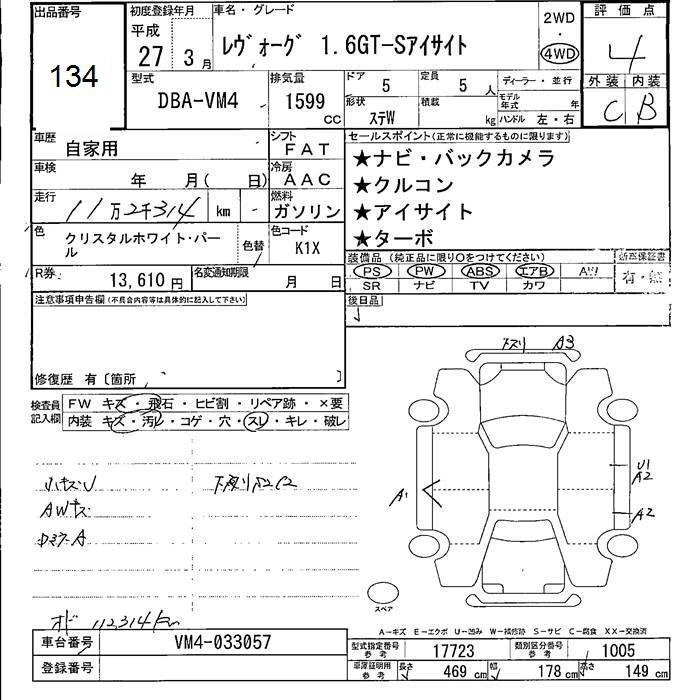 出品番号
134
初度登録年月
平成
27 3月
車名・グレード
レヴォーグ 1.6GT-Sアイサイト
2WD
・
4WD
評価点
4
外装 内装
C B
型式
DBA-VM4
排気量
1599
cc
ドア
5
定員
5人
形状
ステW
積載
kg
ディーラー・並行
モデル年式 年
ハンドル 左・右
車歴
自家用
シフト
FAT
車検
年 月( 日)
冷房
AAC
走行
11万2千314 km
燃料
ガソリン
色
クリスタルホワイト・パール
色替
色コード
K1X
R券
13,610円
名変通知期限
月 日
セールスポイント(正常に機能するものに限ります)
★ナビ・バックカメラ
★クルコン
★アイサイト
★ターボ
装備品 (純正品に限り○をつけてください)
PS PW ABS エアB AW
SR ナビ TV カワ
新車保証書
有・無
後日品
注意事項申告欄(不具合内容等は具体的に記入して下さい)
修復歴 有〔箇所 〕
検査員
記入欄
FW キズ・飛石・ヒビ割・リペア跡・×要
内装 キズ・汚レ・コゲ・穴・スレ・キレ・破レ
小キズU
AWキズ
下廻りサビC2
オド 112314km
下スリ A3
A1
U1
A2
A2
スペア
A-キズ E-エクボ U-凹み W-補修跡 S-サビ C-腐食 XX-交換済
車台番号
VM4-033057
登録番号
型式指定番号
参考
17723
類別区分番号
参考
1005
車庫証明用
参考
長さ 469 cm 幅 178 cm 高さ 149 cm